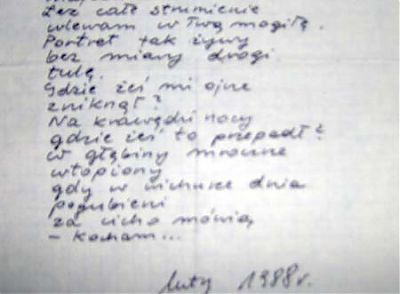 Łez całe strumienie
wlewam w Twą mogiłę.
Portret tak żywy
bez miary drogi
tulę.
Gdzie żeś mi ojne
zniknął?
Na krawędzi nocy
gdzie żeś to przepadł?
W głębiny mroczne
wtopiony
gdy w wichurze dnia
pogubieni
za cicho mówią,
- kocham...
luty 1988r.